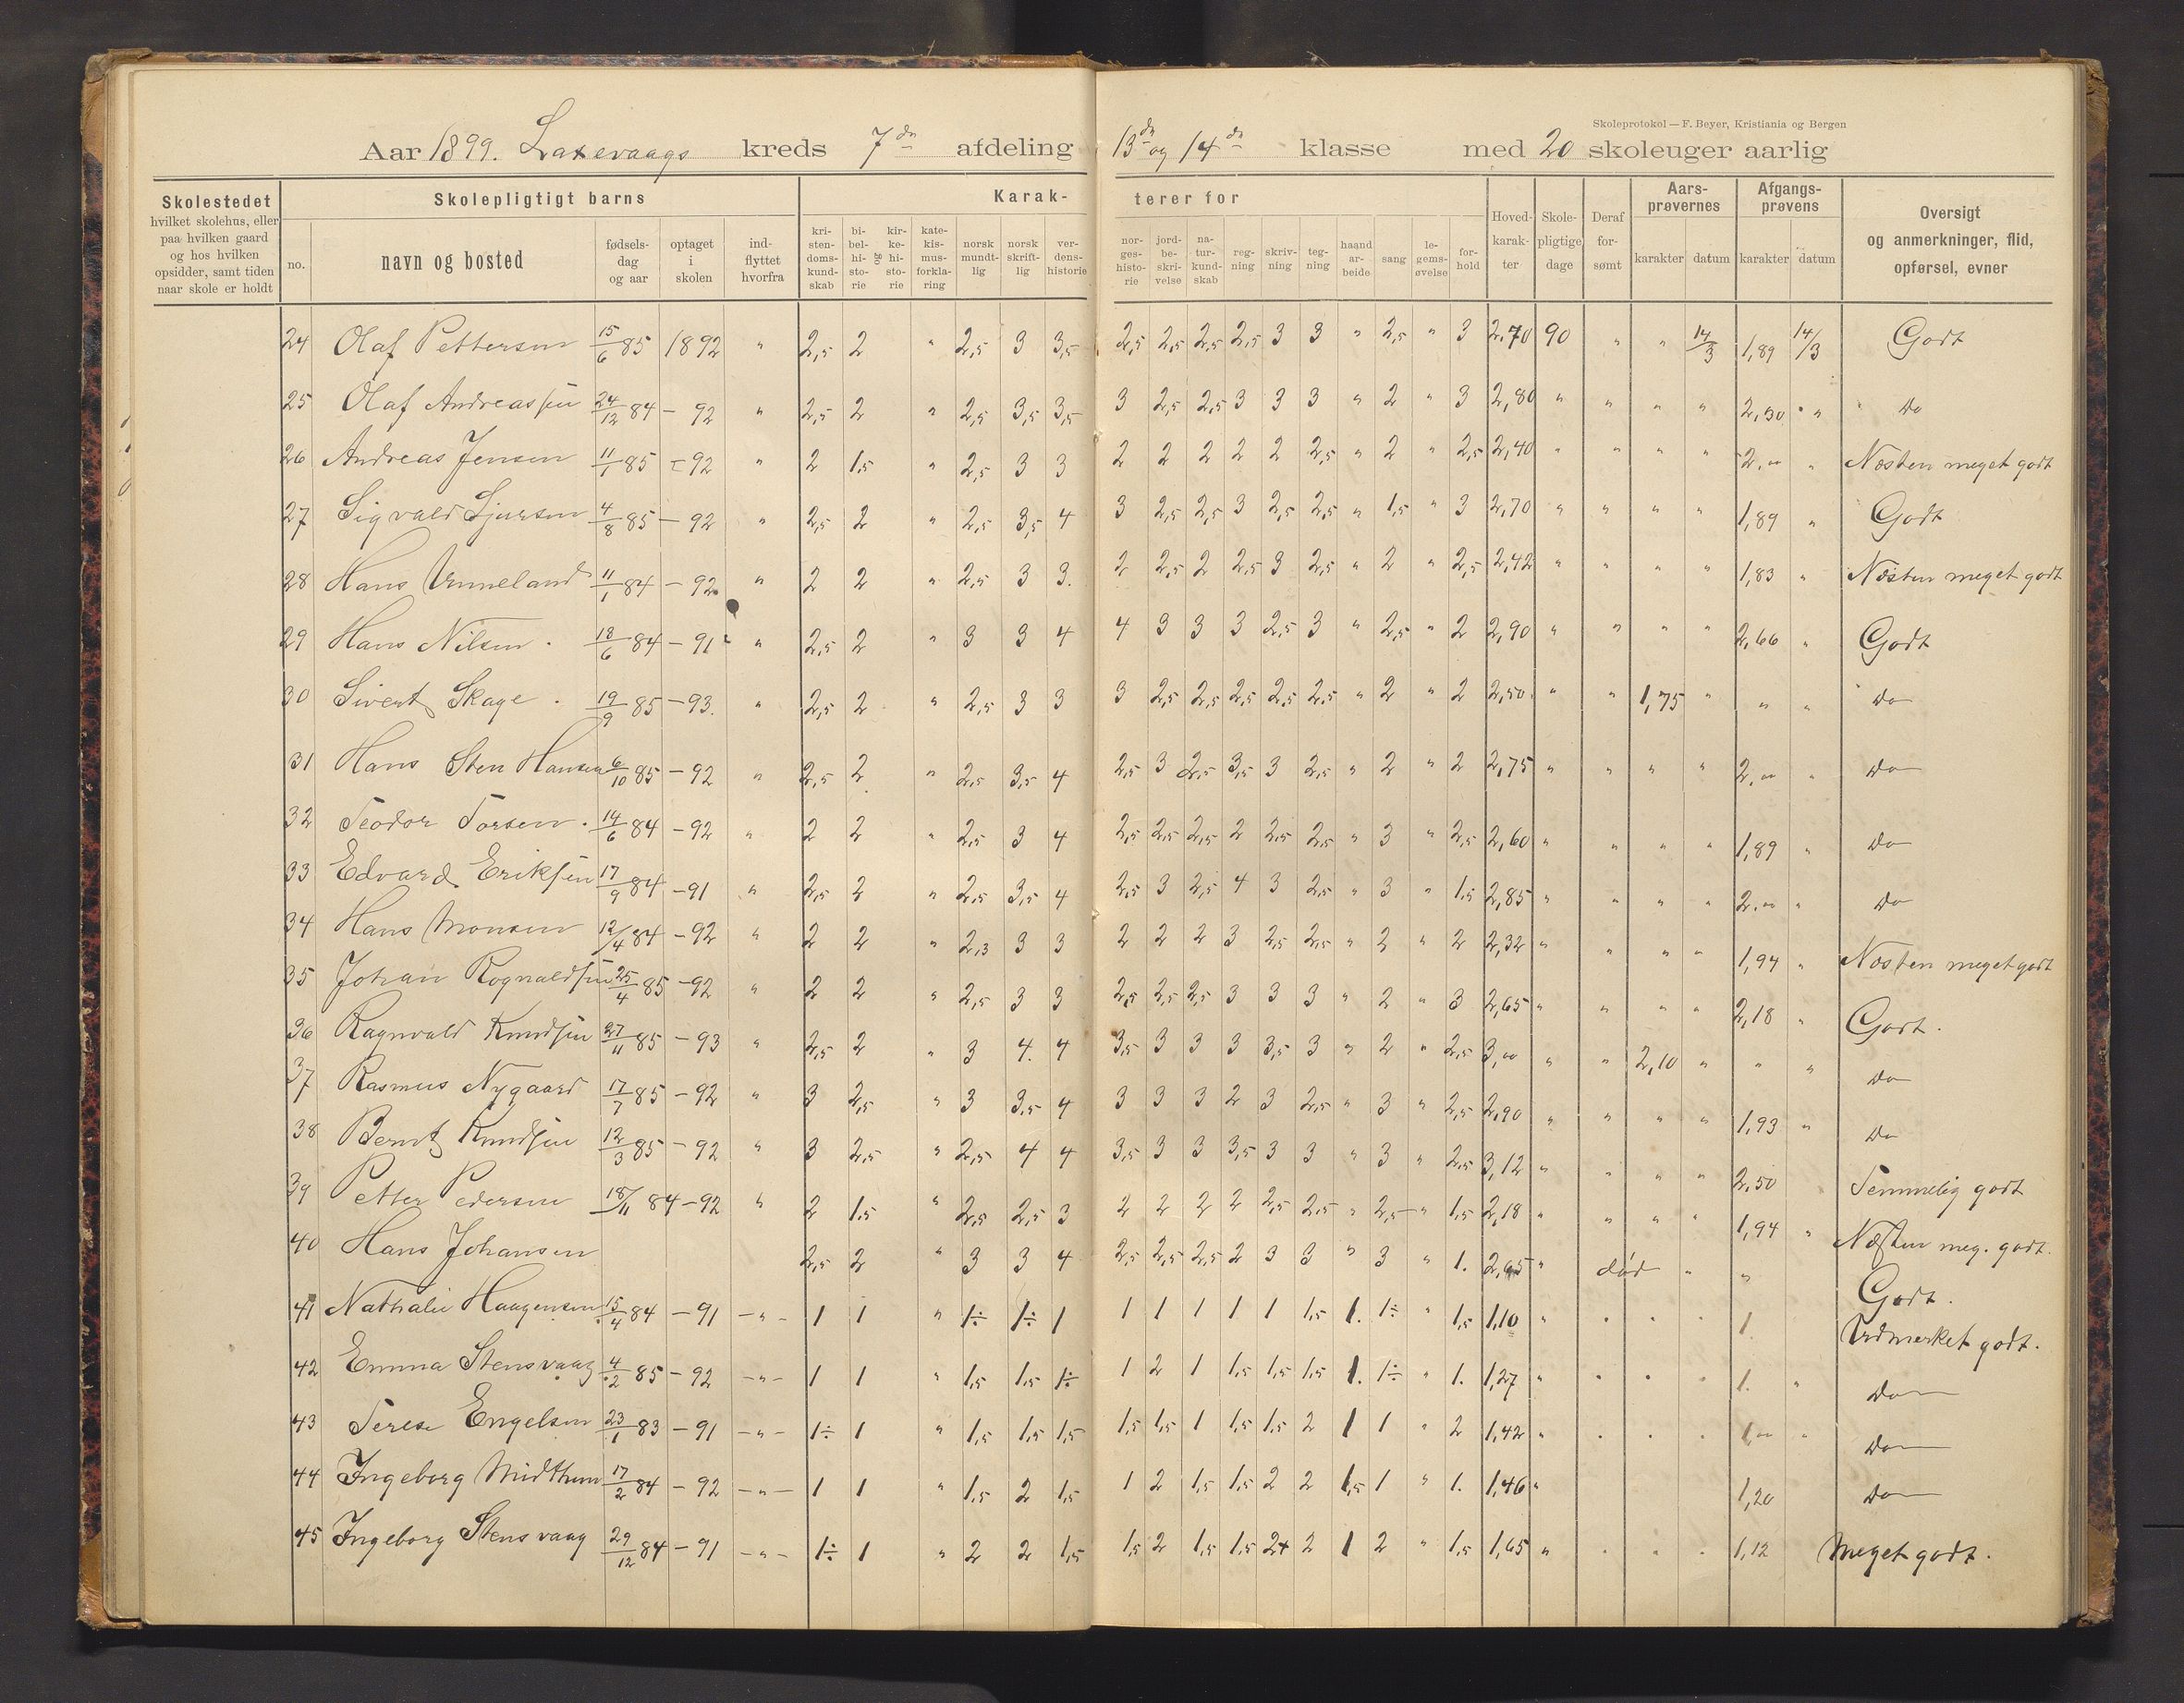 Skoleprotokol — F. Beyer, Kristiania og Bergen
Aar 1899. Laxevaags kreds 7de afdeling 13de og 14de klasse med 20 skoleuger aarlig
Skolestedet hvilket skolehus, eller paa hvilken gaard og hos hvilken opsidder, samt tiden naar skole er holdt
Skolepligtigt barns
no. navn og bosted fødselsdag og aar optaget i skolen indflyttet hvorfra
Karakterer for
kristendomskundskab bibelhistorie og kirkehistorie katekismusforklaring norsk mundtlig norsk skriftlig verdenshistorie norgeshistorie jordbeskrivelse naturkundskab regning skrivning tegning haandarbeide sang legemsøvelse forhold
Hovedkarakter Skolepligtige dage Deraf forsømt Aarsprøvernes karakter datum Afgangsprøvens karakter datum
Oversigt og anmerkninger, flid, opførsel, evner
24 Olaf Pettersen 15/6 85 1892 " 2,5 2 " 2,5 3 3,5 2,5 2,5 2,5 2,5 3 3 " 2,5 " 3 2,70 90 " " 14/3 1,89 14/3 Godt
25 Olaf Andreassen 24/12 84 – 92 " 2,5 2 " 2,5 3,5 3,5 3 2,5 2,5 3 3 3 " 2 " 3 2,80 " " " " 2,30 " " Do
26 Andreas Jensen 11/1 85 – 92 " 2 1,5 " 2,5 3 3 2 2 2 2 2 2,5 " 2 " 2,5 2,40 " " " " 2,00 " Næsten meget godt
27 Sigvald Sjursen 4/8 85 – 92 " 2,5 2 " 2,5 3,5 4 3 2,5 2,5 3 2,5 2,5 " 1,5 " 3 2,70 " " " " 1,89 " Godt
28 Hans Unneland 11/1 84 – 92 " 2 2 " 2,5 3 3. 2 2,5 2 2,5 3 2,5 " 2 " 2,5 2,42 " " " " 1,83 " Næsten meget godt
29 Hans Nilsen. 18/6 84 – 91 " 2,5 2 " 3 3 4 4 3 3 3 2,5 3 " 2,5 " 2 2,90 " " " " 2,66 " Godt
30 Sivert Skage. 19/9 85 – 93. " 2,5 2 " 2,5 3 3 3 2,5 2,5 2,5 2,5 2,5 " 2 " 2 2,50. " " 1,75 " " " Do
31 Hans Sten Hansen 6/10 85 – 92 " 2,5 2 " 2,5 3,5 4 2,5 3 2,5 3,5 3 2,5 " 2 " 2 2,75 " " " " 2,00 " Do
32 Teodor Torsen. 14/6 84 – 92 " 2 2 " 2,5 3 4 2,5 2,5 2,5 2 2,5 2,5 " 3 " 2,5 2,60 " " " " 1,89 " Do
33 Edvard Eriksen 17/9 84 – 91 " 2,5 2 " 2,5 3,5 4 2,5 3 2,5 4 3 2,5 " 3 " 1,5 2,85 " " " " 2,00 " Do
34 Hans Monsen 12/4 84 – 92 " 2 2 " 2,3 3 3 2 2 2 3 2,5 2,5 " 2 " 2 2,32 " " " " 1,94 " Næsten meget godt
35 Johan Rognaldsen 25/4 85 – 92 " 2 2 " 2,5 3 3 2,5 2,5 2,5 3 3 3 " 2 " 3 2,65 " " " " 2,18 " Godt.
36 Ragnvald Knudsen 27/11 85 – 93 " 2,5 2 " 3 4. 4 3,5 3 3 3 3,5 3 " 2 " 2,5 3,00 " " 2,10 " " " Do
37 Rasmus Nygaard 17/7 85 – 92 " 3 2,5 " 3 3,5 4 3 3 3 2 3 2,5 " 3 " 2,5 2,90 " " " " 1,93 " Do
38 Bernt Knudsen 12/3 85 – 92 " 3 2,5 " 2,5 4 4 3,5 3 3 3,5 3 3 " 3 " 2,5 3,12 " " " " 2,50 Temmelig godt
39 Petter Pedersen 18/11 84 – 92 " 2 1,5 " 2,5 2,5 3 2 2 2 2 2,5 2,5 " 2,5 " 1,5 2,18 " " " " 1,94 " Næsten meg. godt.
40 Hans Johansen 2,5 2 " 3 3 4 2,5 2,5 2,5 2 3 3 " 3 " 1. 2,65 " død " " Godt.
41 Nathalie Haagensen 15/4 84 – 91 – " – 1 1 " 1÷ 1÷ 1 1 1 1 1 1 1,5 1. 1÷ " 1,5 1,10 " " " " 1. Udmerket godt.
42 Emma Stensvaag 4/2 85 – 92 – " – 1 1 " 1,5 1,5 1÷ 1 2 1 1,5 1,5 1,5 1. 1÷ " 1. 1,27 " " " " 1. " Do
43 Terese Engelsen 23/1 83 – 91 – " – 1÷ 1 " 1,5 1,5 1,5 1,5 1,5 1 1,5 1,5 2 1 1 " 2 1,42 " " " " 1,00 " Do
44 Ingeborg Midthun 17/2 84 – 92 – " – 1 1 " 1,5 2 1,5 1 2 1,5 1,5 2 2 1,5 1 " 1. 1,46 " 1,20 Do
45 Ingeborg Stensvaag 29/12 84 – 91 – " – 1÷ 1 " 2 2 1,5 1,5 2 1,5 1,5 2+ 2 1 2 " 1,5 1,65 " " " " 1,12 Meget godt.